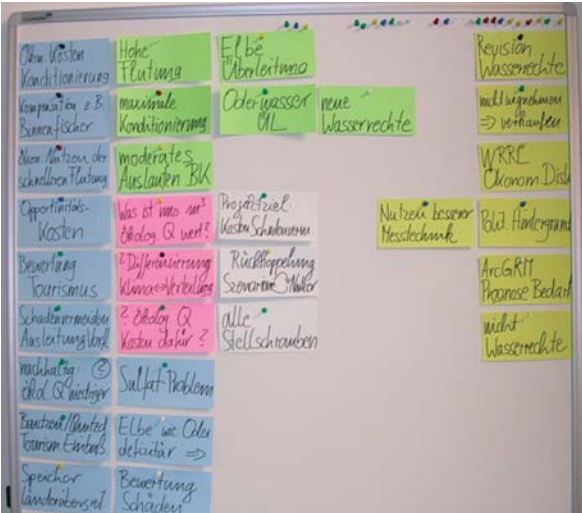 Ökon. Kosten
Konditionierung
Kompensation z.B.
Binnenfischer
Ökon. Nutzen der
schnelleren Flutung
Opportinitäts-
Kosten
Bewertung
Tourismus
Schadenvermeiden
nachhaltig
ökol. Q niedriger
Tourism Einbuß.
Speicher
Hohe
Flutung
maximale
Konditionierung
moderates
Auslaufen BK
Was ist uns m³
ökolog. Q wert?
? Differenzierung
Klima Verteilung
? ökolog. Q
Kosten dafür ?
Sulfat Problem
Elbe wie Oder
defizitär ⇒
Bewertung
Schäden
Elbe
Überleitung
Oderwasser
ÜL
Projektziel
Kosten Schadenverm.
Rückkoppelung
Szenarien
alle
Stellschrauben
neue
Wasserrechte
Nutzen besserer
Messtechnik
Revision
Wasserrechte
nicht wegnehmen
⇒ verkaufen
WRRL
Ökonom. Disk
Polit. Hintergrund
ArcGRM
Prognose Bedarf
nicht
Wasserrechte